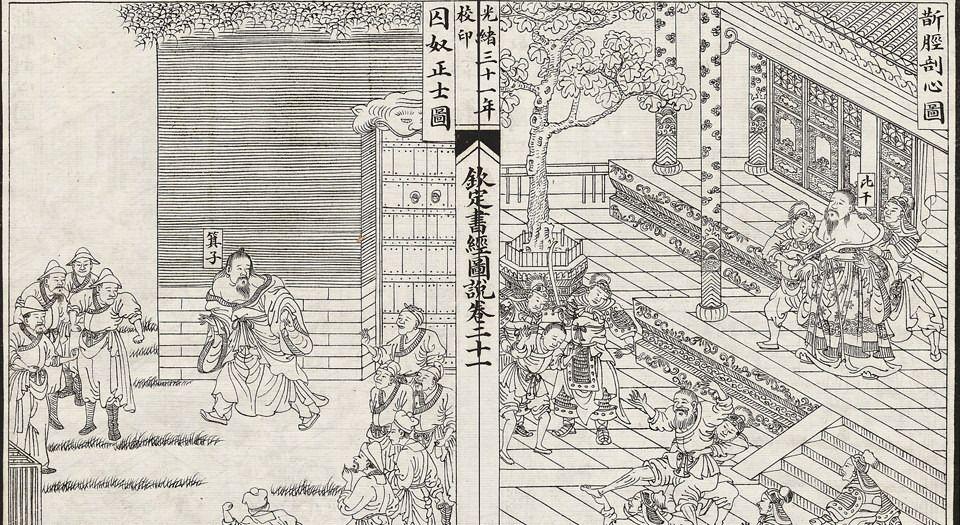 斮脛剖心圖
比干
光緒三十一年
校印
欽定書經圖說卷二十一
囚奴正士圖
箕子